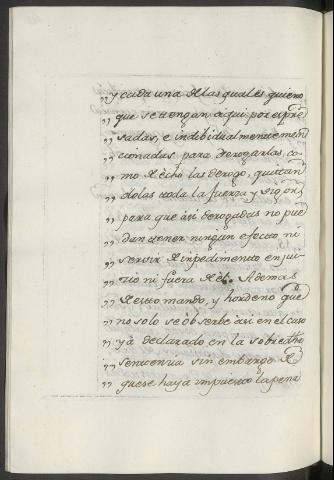 „ y cada una de las quales quiero
„ que se tengan aqui por expre
„ sadas, e indibidualmente men
„ cionadas para derogarlas, co
„ mo de echo las derogo, quitan
„ dolas toda la fuerza y vigor
„ para que asi derogadas no pue
„ dan tener ningun efecto, ni
„ servir de inpedimento en jui
„ cio ni fuera de el. Ademas
„ de esto mando, y hordeno que
„ no solo se obserbe asi en el caso
„ ya declarado en la sobredha
„ sentencia sin embargo de
„ que se haya impuesto la pena